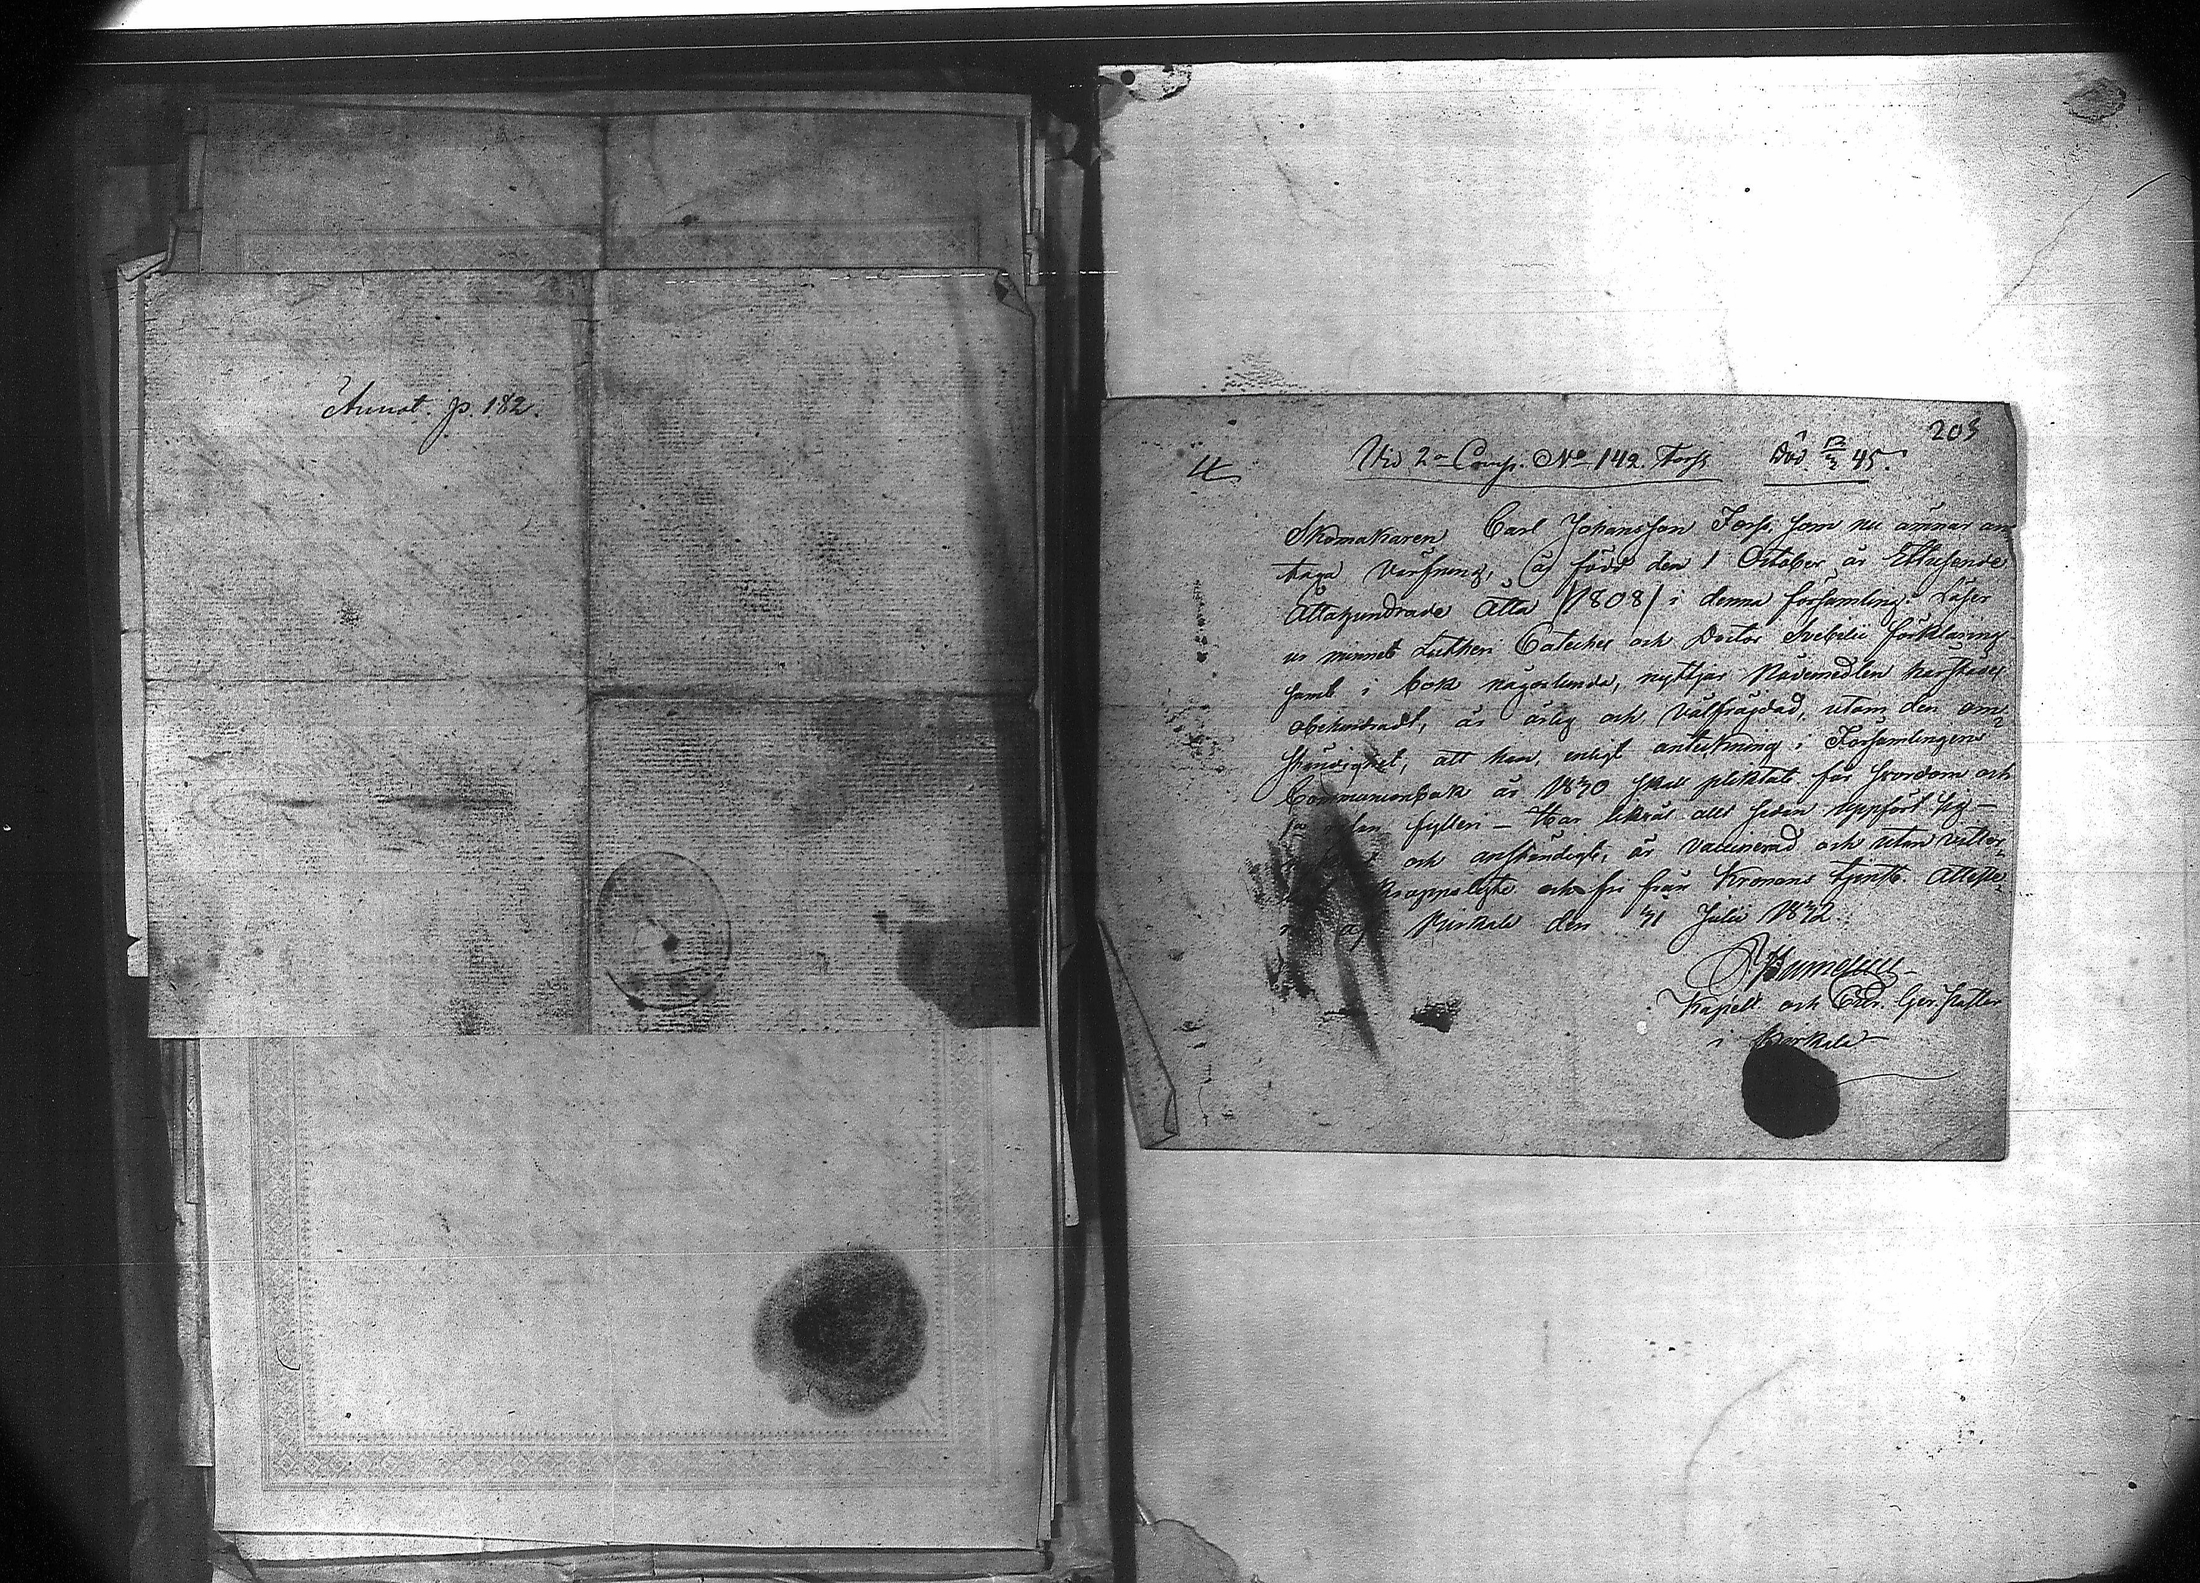 Annot. p. 182.
203
4
Vid 2a Comp. No 142. Forss Död 12/3 45.
Skomakaren Carl Johansson Forss, som nu ämnar an
taga värfning, är född den 1 October år Ettusende
Åttahundrade Åtta /1808/ i denna församling. Läser
ur minnet Lutheri Cateches och Doctor Svebilii förklaring
samt i bok någorlunda, nyttjar Nådemedlen
obehindradt, är ärlig och välfrägdad, utom den om-
ständighet, att han, enligt anteckning i Församlingens
Communionbok år 1830 skall pliktat för hordom och
fylleri – Har likväl allt sedan uppfört sig –
och anständigt, är vaccinerad och utan
och fri från Kronans tjenst. Atteste-
af Birkala den 31 Julii 1832.
Kapell. och
i Birkala